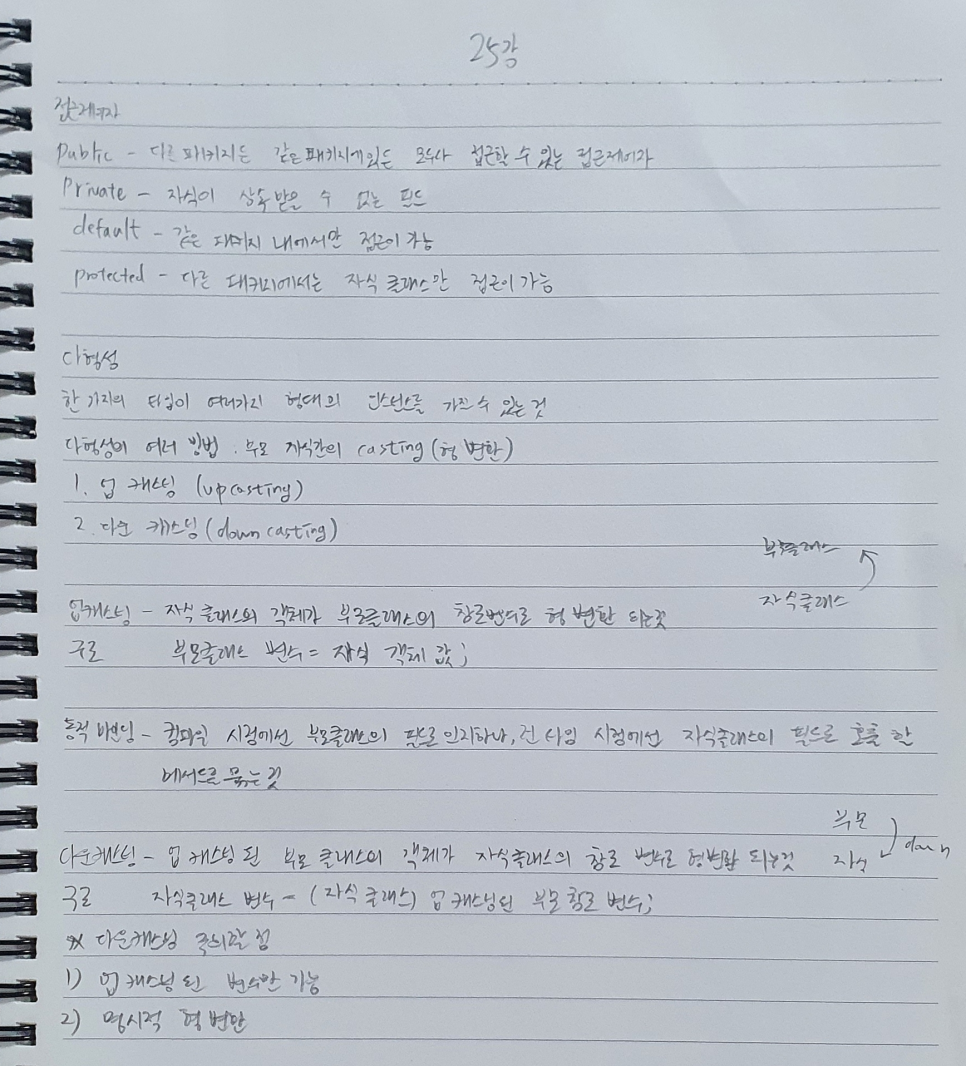 25강
접근제어자
public - 다른 패키지든 같은 패키지에있든 모두사 접근할 수 있는 접근제어자
Private - 자식이 상속받을 수 없는 필드
default - 같은 패키지 내에서만 접근이 가능
protected - 다른 패키지에서는 자식 클래스만 접근이 가능
다형성
한 가지의 타입이 여러가지 형태의 인스턴스를 가질 수 있는 것
다형성의 여러 방법. 부모 자식간의 casting (형 변환)
1. 업 캐스팅 (upcasting)
2. 다운 캐스팅 (down casting)
부모클래스
자식클래스
업캐스팅 - 자식 클래스의 객체가 부모클래스의 참조변수로 형 변환 되는것
구조 부모클래스 변수 = 자식 객체 값;
동적 바인딩 - 컴파일 시점에선 부모클래스의 필드로 인지하나, 런 타임 시점에선 자식클래스의 필드로 호출 할
메서드로 묶는것
부모
다운캐스팅 - 업 캐스팅 된 부모 클래스의 객체가 자식클래스의 참조 변수로 형변환 되는것 자식 down
구조 자식클래스 변수 = (자식 클래스) 업 캐스팅된 부모 참조 변수;
※ 다운캐스팅 주의할 점
1) 업 캐스팅 된 변수만 가능
2) 명시적 형 변환